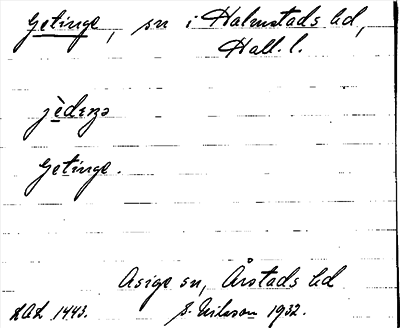 Getinge, sn i Halmstads hd,
Hall. l.
jèdıŋə
Getinge.
Asige sn, Årstads hd
LAL 1443. S. Nilsson 1932.